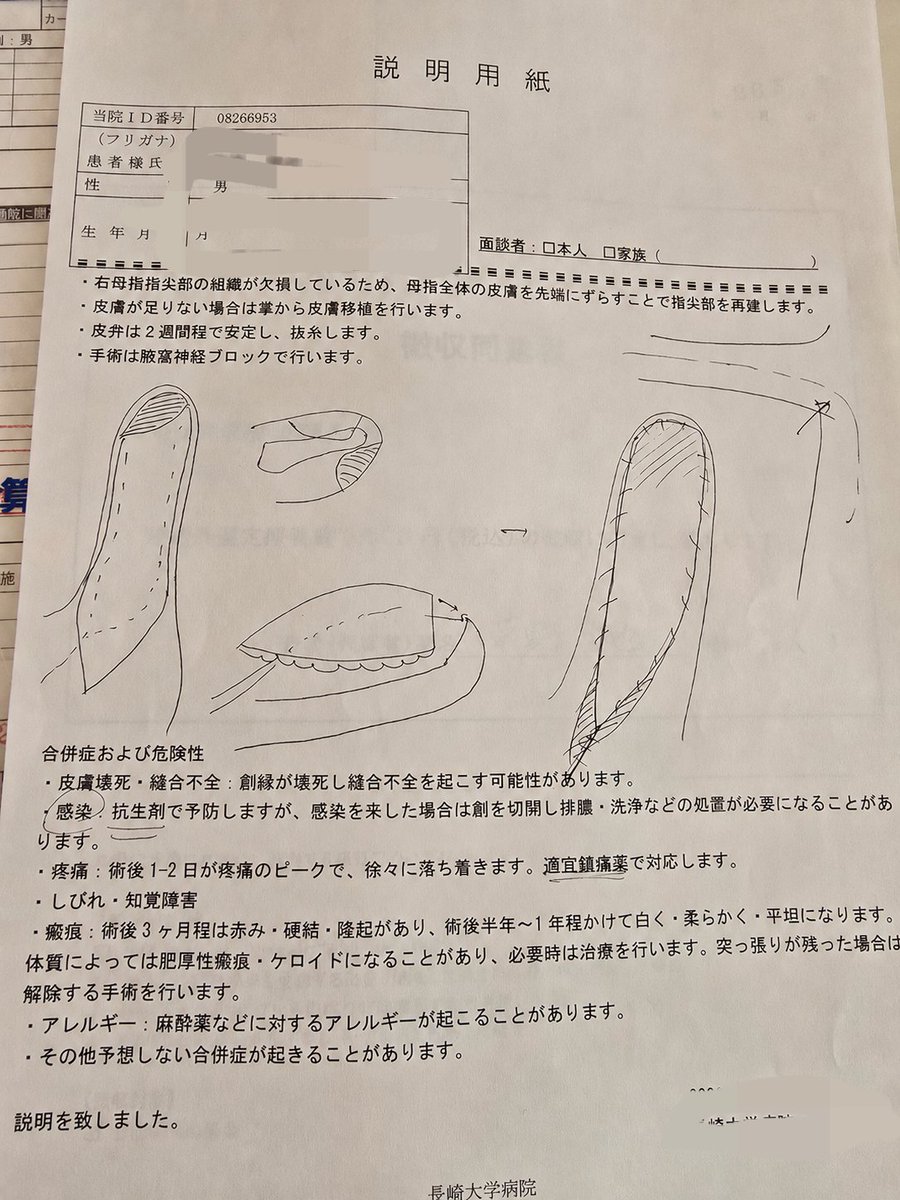 カー
：男
説明用紙
当院ＩＤ番号 08266953
（フリガナ）
患者様氏
性 男
生年月 月
面談者：□本人 □家族（ ）
・右母指指尖部の組織が欠損しているため、母指全体の皮膚を先端にずらすことで指尖部を再建します。
・皮膚が足りない場合は掌から皮膚移植を行います。
・皮弁は２週間程で安定し、抜糸します。
・手術は腋窩神経ブロックで行います。
算
施
合併症および危険性
・皮膚壊死・縫合不全：創縁が壊死し縫合不全を起こす可能性があります。
・感染：抗生剤で予防しますが、感染を来した場合は創を切開し排膿・洗浄などの処置が必要になることがあ
ります。
・疼痛：術後1-2日が疼痛のピークで、徐々に落ち着きます。適宜鎮痛薬で対応します。
・しびれ・知覚障害
・瘢痕：術後3ヶ月程は赤み・硬結・隆起があり、術後半年～1年程かけて白く・柔らかく・平坦になります。
体質によっては肥厚性瘢痕・ケロイドになることがあり、必要時は治療を行います。突っ張りが残った場合は
解除する手術を行います。
・アレルギー：麻酔薬などに対するアレルギーが起こることがあります。
・その他予想しない合併症が起きることがあります。
説明を致しました。
長崎大学病院